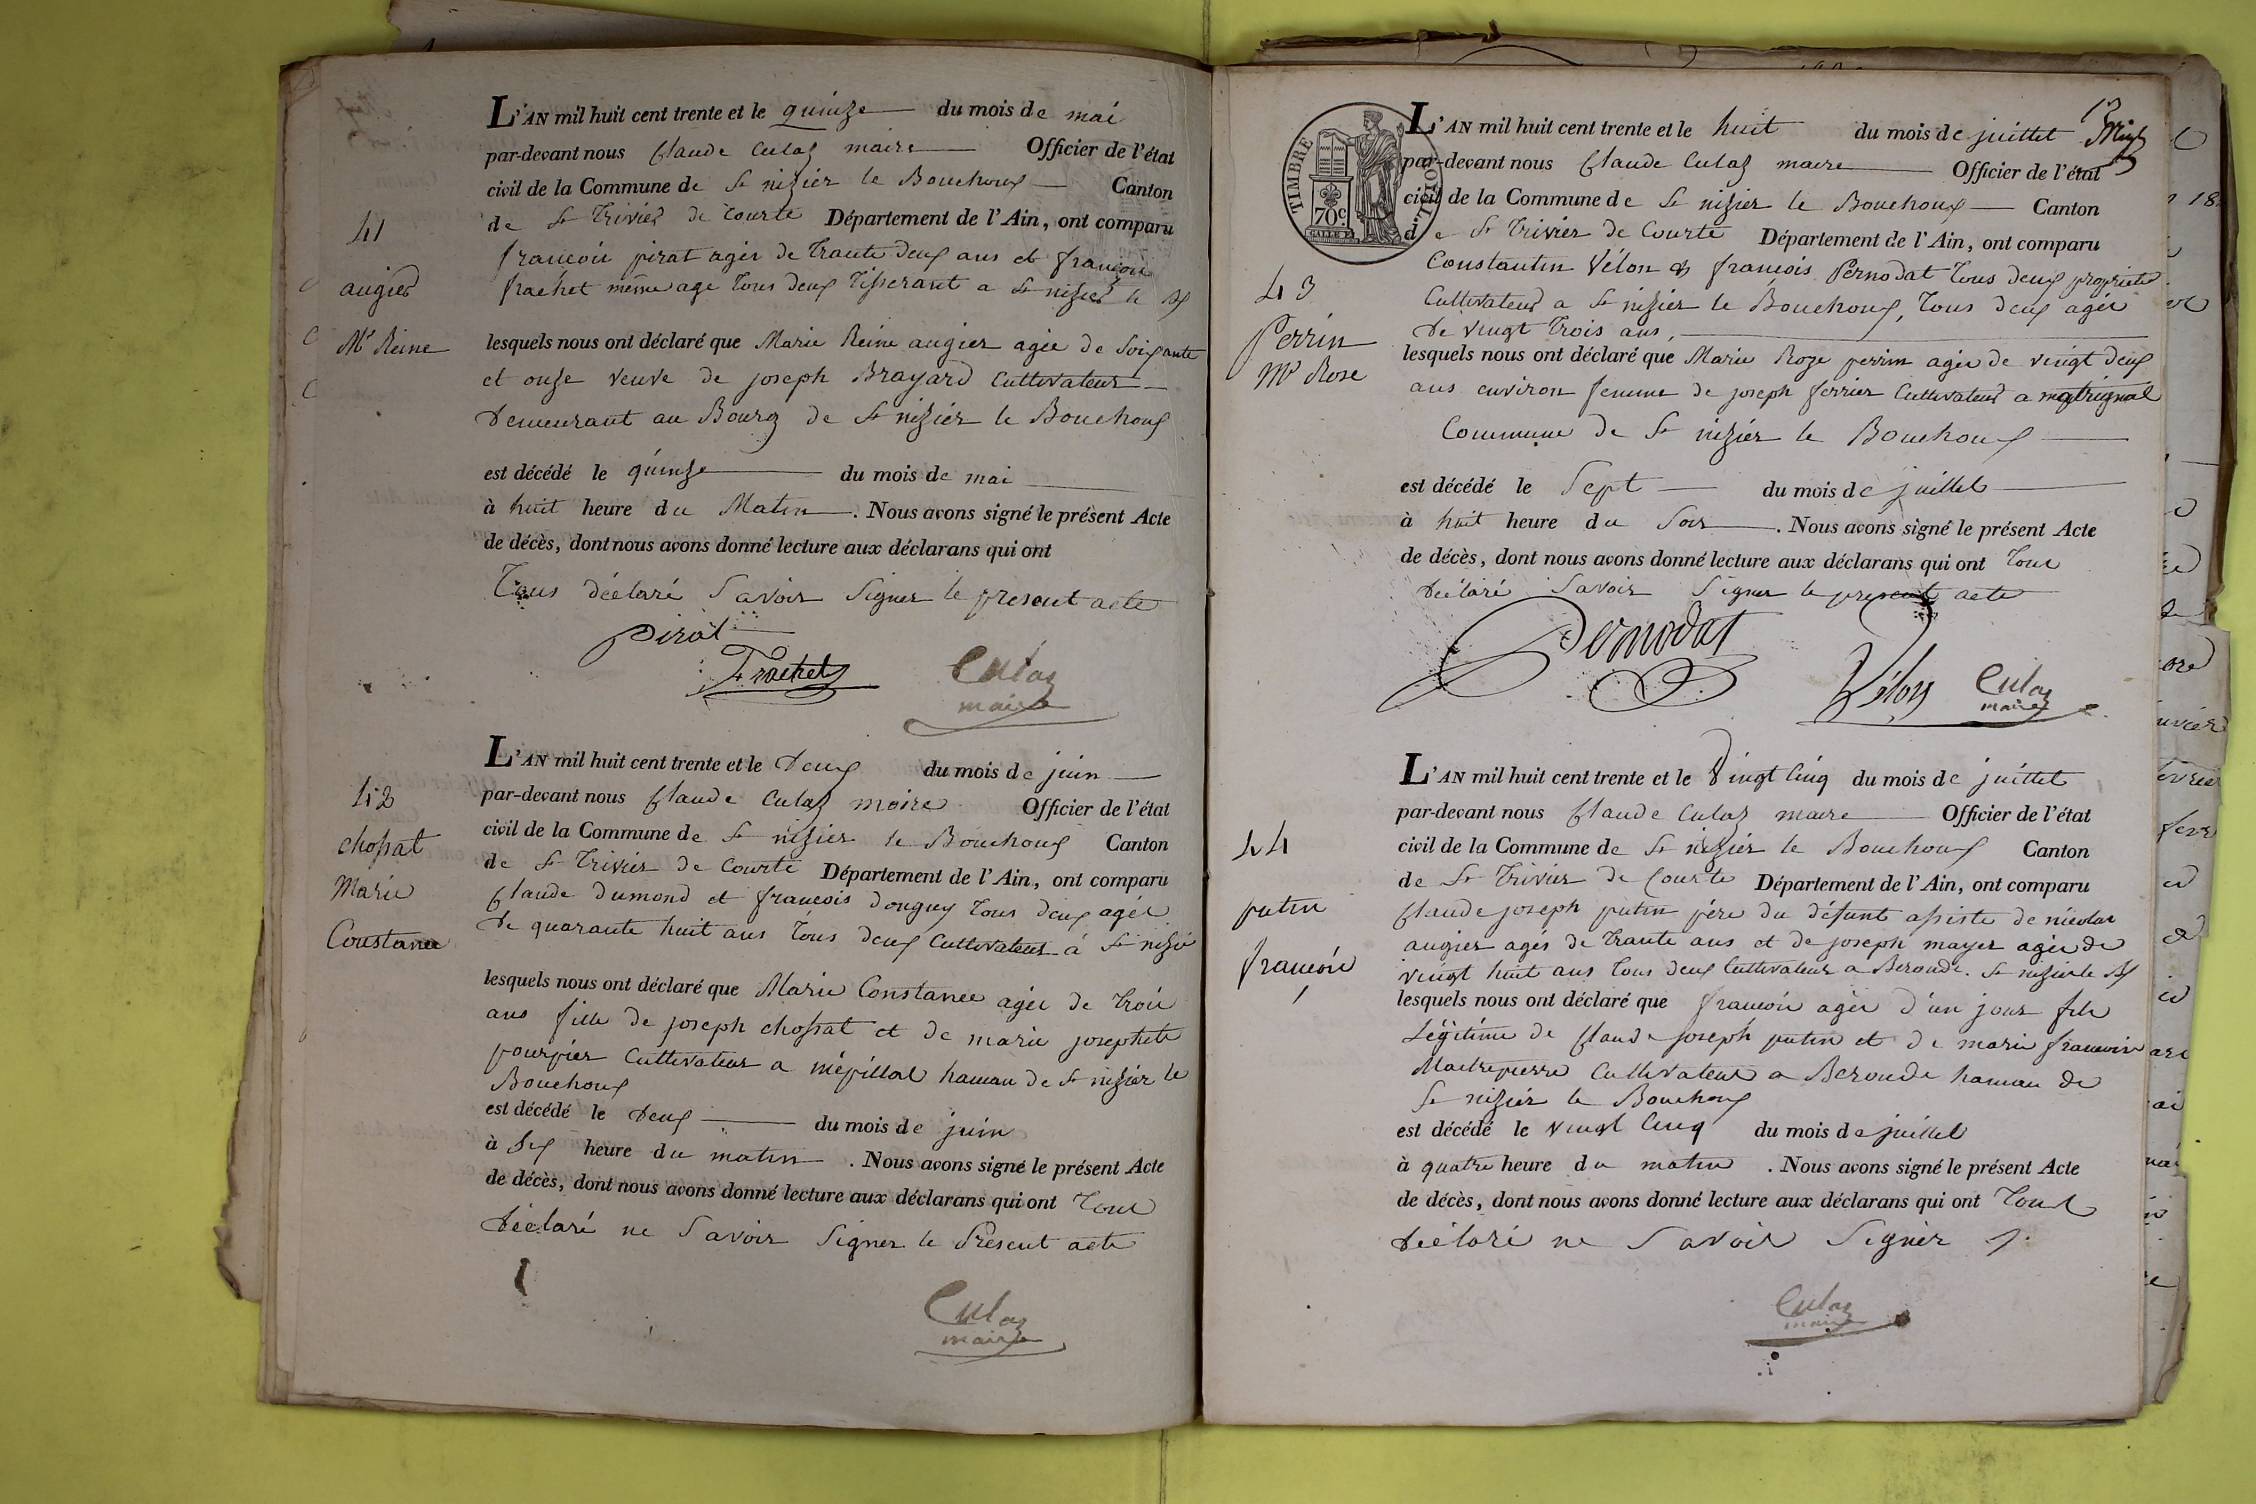 L'AN mil huit cent trente et le quinze du mois de mai
par-devant nous Claude Culaz maire Officier de l'état
civil de la Commune de St nizier le Bouchoux Canton
de St Trivier de Courte Département de l'Ain, ont comparu
francois pirat agés de trante deux ans et francois
frachet même age tous deux tisserant a St nizier le Bx
41
augier
Mie Reine
lesquels nous ont déclaré que Marie Reine augier agée de Soixante
et onze veuve de joseph Brayard Cultivateur
Demeurant au Bourg de St nizier le Bouchoux
est décédé le quinze du mois de mai
à huit heure du Matin. Nous avons signé le présent Acte
de décès, dont nous avons donné lecture aux déclarans qui ont
Tous déclaré Savoir Signer le present acte
pirat
Frachet
Culaz
maire
L'AN mil huit cent trente et le Deux du mois de juin
par-devant nous Claude Culaz maire Officier de l'état
civil de la Commune de St nizier le Bouchoux Canton
de St Trivier de Courte Département de l'Ain, ont comparu
Claude Dumond et francois donguy tous deux agés
De quarante huit ans tous deux Cultivateur à St nizié
42
chossat
Marie
Constance
lesquels nous ont déclaré que Marie Constance agée de Trois
ans fille de joseph chossat et de marie josephete
pourpier Cultivateur a mépillat hamau de St nizier le
Bouchoux
est décédé le Deux du mois de juin
à Six heure du matin. Nous avons signé le présent Acte
de décès, dont nous avons donné lecture aux déclarans qui ont Tous
Déclaré ne Savoir Signer le Présent acte
Culaz
maire
TIMBRE ROYAL
70c
L'AN mil huit cent trente et le huit du mois de juillet
par-devant nous Claude Culaz maire Officier de l'état
civil de la Commune de St nizier le Bouchoux Canton
de St Trivier de Courte Département de l'Ain, ont comparu
Constantin Vélon & francois Pernodat tous deux propriete
Cultivateur a St nizier le Bouchoux, tous deux agés
De vingt trois ans,
43
Perrin
Mie Rose
lesquels nous ont déclaré que Marie Roze perrin agée de vingt deux
ans environ femme de joseph ferrier Cultivateur a matrignat
Commune de St nizier le Bouchoux
est décédé le Sept du mois de juillet
à huit heure du Soir. Nous avons signé le présent Acte
de décès, dont nous avons donné lecture aux déclarans qui ont Tous
Déclaré Savoir Signer le present acte
Pernodat
Vélon
Culaz
maire
L'AN mil huit cent trente et le Vingt Cinq du mois de juillet
par-devant nous Claude Culaz maire Officier de l'état
civil de la Commune de St nizier le Bouchoux Canton
de St Trivier de Courte Département de l'Ain, ont comparu
Claude joseph putin pére du défunt assiste de nicolas
augier agés de trante ans et de joseph mayer agée de
vingt huit ans tous deux Cultivateur a Beroude. St nizier le Bx
44
putin
francois
lesquels nous ont déclaré que francois agée d'un jour fils
Légitime de Claude joseph putin et de marie francoise
Maitrepierre Cultivateur a Beroude hamau de
St nizier le Bouchoux
est décédé le vingt Cinq du mois de juillet
à quatre heure du matin. Nous avons signé le présent Acte
de décès, dont nous avons donné lecture aux déclarans qui ont Tous
Déclaré ne Savoir Signer
Culaz
maire